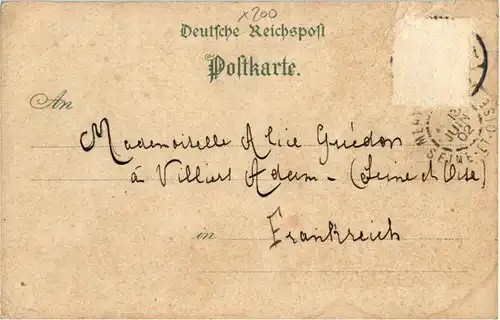 x200
Deutsche Reichspost
Postkarte.
An
Mademoiselle Alice Guédon
à Villiers Adam - (Seine et Oise)
in Frankreich
13
JUIN
02
SEINE